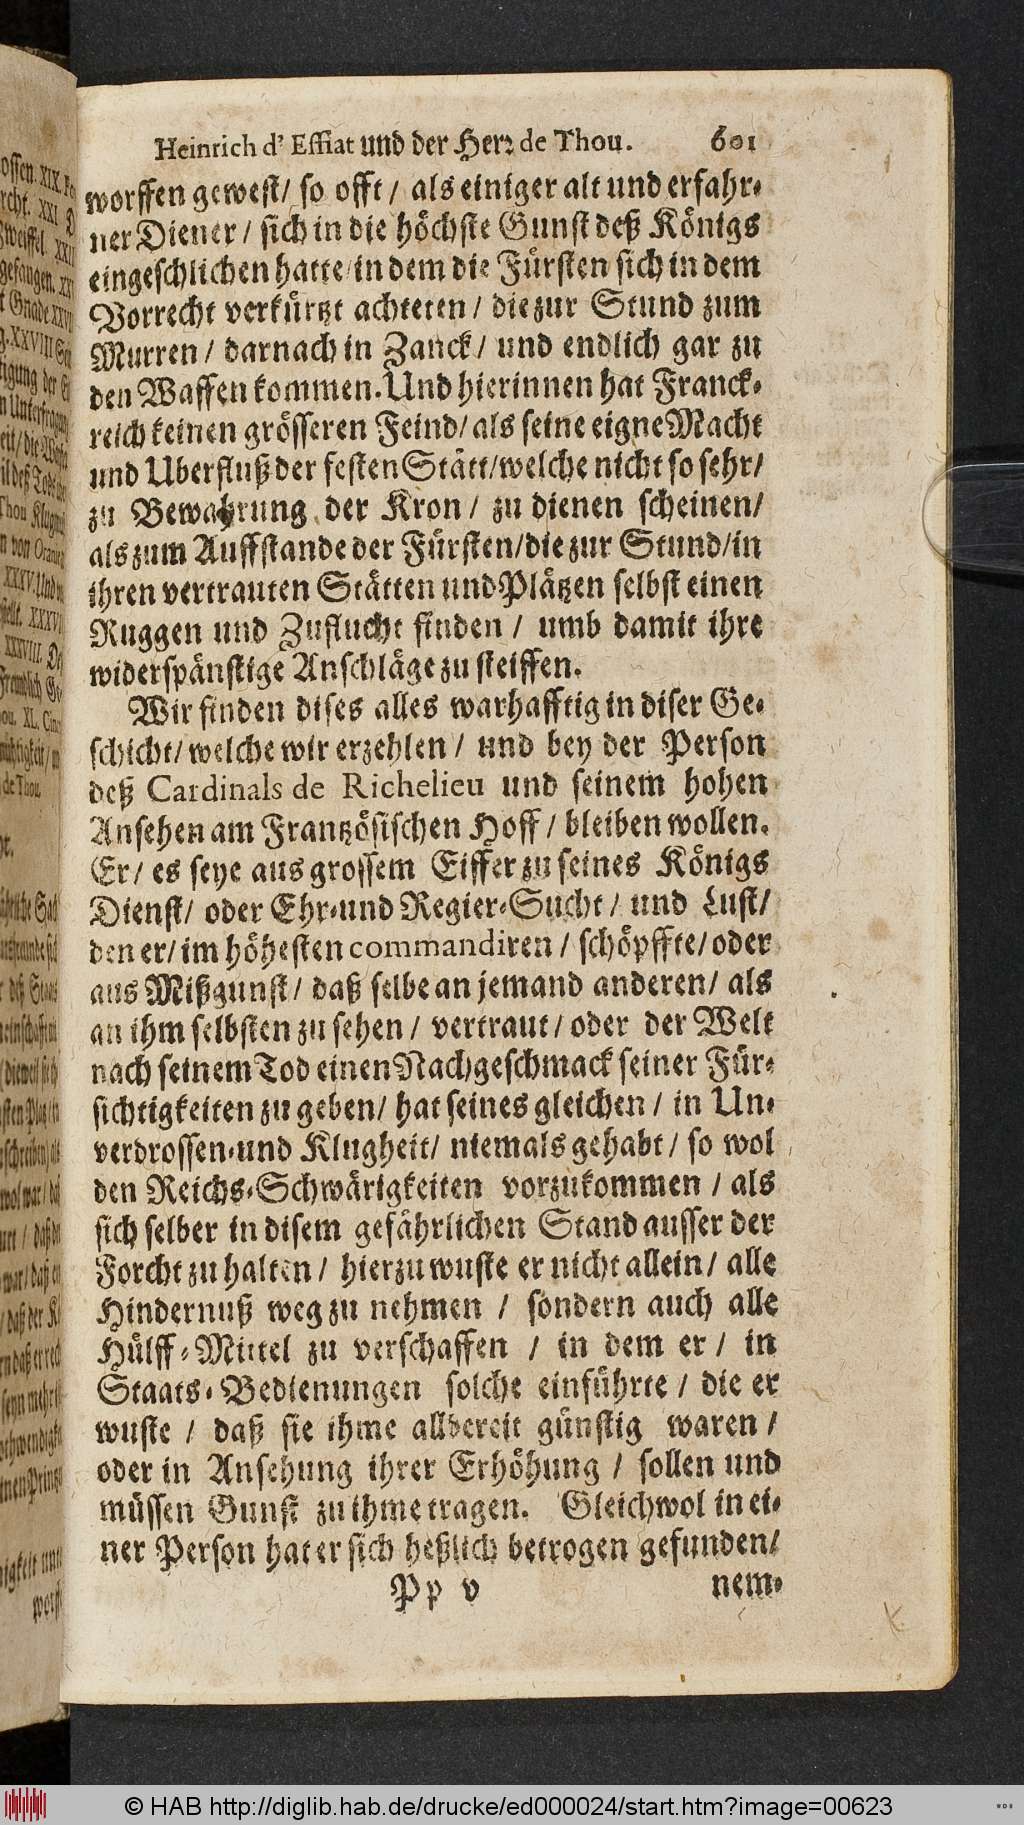 Heinrich d' Effiat und der Herr de Thou. 601
worffen gewest/ so offt / als einiger alt und erfahr-
ner Diener / sich in die höchste Gunst deß Königs
eingeschlichen hatte/ in dem die Fürsten sich in dem
Vorrecht verkürtzt achteten / die zur Stund zum
Murren / darnach in Zanck / und endlich gar zu
den Waffen kommen. Und hierinnen hat Franck-
reich keinen grösseren Feind/ als seine eigne Macht
und Uberfluß der festen Stätt/ welche nicht so sehr/
zu Bewahrung der Kron / zu dienen scheinen/
als zum Auffstande der Fürsten/ die zur Stund/ in
ihren vertrauten Stätten und Plätzen selbst einen
Ruggen und Zuflucht finden / umb damit ihre
widerspänstige Anschläge zu steiffen.
Wir finden dises alles warhafftig in diser Ge-
schicht/ welche wir erzehlen / und bey der Person
deß Cardinals de Richelieu und seinem hohen
Ansehen am Frantzösischen Hoff / bleiben wollen.
Er/ es seye aus grossem Eiffer zu seines Königs
Dienst/ oder Ehr- und Regier-Sucht / und Lust/
den er/ im höhesten commandiren / schöpffte/ oder
aus Mißgunst/ daß selbe an jemand anderen/ als
an ihm selbsten zu sehen / vertraut / oder der Welt
nach seinem Tod einen Nachgeschmack seiner Für-
sichtigkeiten zu geben/ hat seines gleichen / in Un-
verdrossen- und Klugheit/ niemals gehabt / so wol
den Reichs-Schwärigkeiten vorzukommen / als
sich selber in disem gefährlichen Stand ausser der
Forcht zu halten / hierzu wuste er nicht allein/ alle
Hindernuß weg zu nehmen / sondern auch alle
Hülff-Mittel zu verschaffen / in dem er / in
Staats-Bedienungen solche einführte / die er
wuste / daß sie ihme allbereit günstig waren /
oder in Ansehung ihrer Erhöhung / sollen und
müssen Gunst zu ihme tragen. Gleichwol in ei-
ner Person hat er sich heßlich betrogen gefunden/
Pp v nem-
© HAB http://diglib.hab.de/drucke/ed000024/start.htm?image=00623